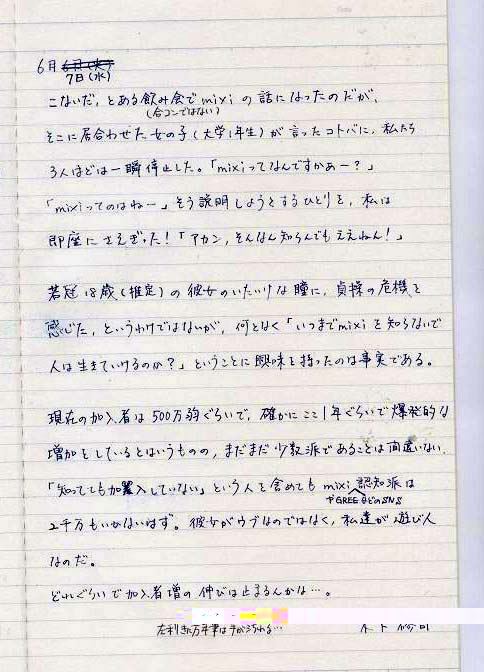 6月 6日(火)
7日(水)
こないだ、とある飲み会でmixiの話になったのだが、
(合コンではない)
そこに居合わせた女の子(大学1年生)が言ったコトバに、私たち
3人ほどは一瞬停止した。「mixiってなんですかあー?」
「mixiってのはねー」そう説明しようとするひとりを、私は
即座にさえぎった!「アカン、そんなん知らんでもええねん!」
若冠18歳(推定)の彼女のいたいけな瞳に、貞操の危機を
感じた、というわけではないが、何となく「いつまでmixiを知らないで
人は生きていけるのか?」ということに興味を持ったのは事実である。
現在の加入者は500万弱ぐらいで、確かにここ1年ぐらいで爆発的な
増加をしているとはいうものの、まだまだ少数派であることは間違いない。
「知ってても加入していない」という人を含めてもmixi認知派は
やGREEなどのSNS
2千万もいかないはず。彼女がウブなのではなく、私達が遊び人
なのだ。
どれぐらいで加入者増の伸びは止まるんかな…。
左利き万年筆は手が汚れる…
木下